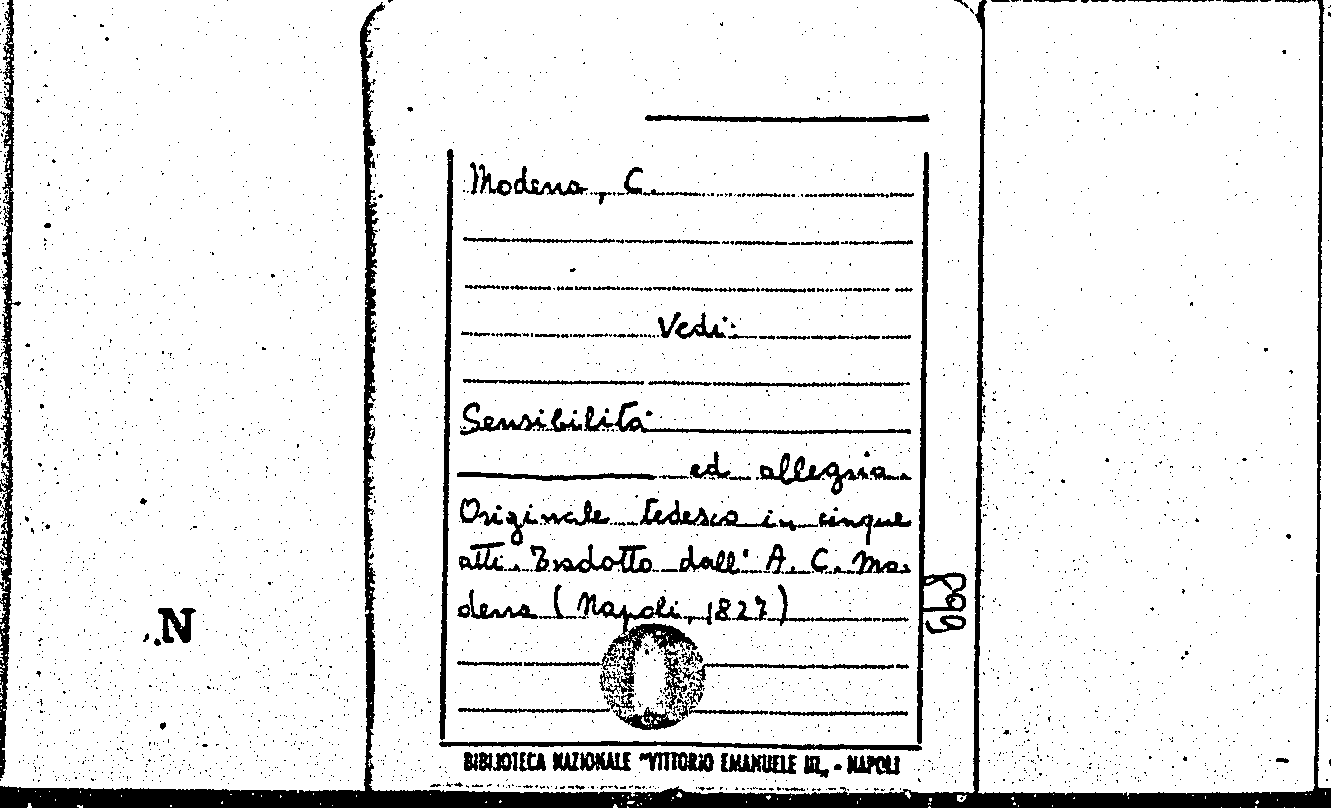 Modena, C.
Vedi:
Sensibilità
ed allegria.
Originale tedesco in cinque
atti. Tradotto dall' A. C. Mo-
dena (Napoli, 1827)
N
BIBLIOTECA NAZIONALE "VITTORIO EMANUELE III„ - NAPOLI